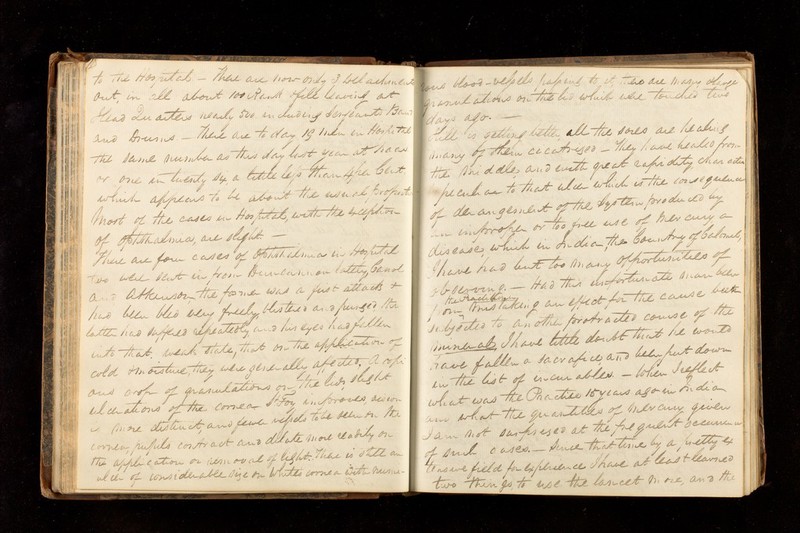 to the Hospital – There are now only 3 detachments
out, in all about 100 Rank & file leaving at
Head Quarters nearly 500 including Sergeants Band
and Drums – There are to day 19 men in Hospital
the same number as this day last year at
or one in twenty six a little less than 4 per Cent
which appears to be about the usual proportion
Most of the cases in Hospital, with the exception
of Ophthalmia, are slight –
There are four cases of Ophthalmia in Hospital
two were sent in from Duncannon Battery,
and Atkinson, the former was a first attack &
had been bled very freely, blistered and purged the
latter had suffered repeatedly, and his eyes had fallen
into that, weak state, that on the application of
cold or moisture, they were generally affected. A
ous crop of granulations on the lids, slight
ulcerations of the cornea – Foy improves
is more distinct, and fewer vessels to be seen on the
cornea, pupils contract and dilate more readily on
the application or removal of light. There is still an
ulcer of considerable size on Whites cornea with
blood-vessels passing to it, there are many large
granulations on the lid which were touched two
days ago. –
is getting better, all the sores are healing
many of them cicatrized – They have healed from
the Middle, and with great rapidity, character
peculiar to that ulcer which is the consequence
of derangement of the system produced by
an improper or too free use of Mercury a
disease which in India, the Country of Calomel,
I have had but too many opportunities of
observing. – Had this unfortunate man been
from mistaking an effect for the cause been
subjected to another protracted course of the
mineral, I have little doubt that he would
have fallen a sacrifice and been put down
in the list of incurables. – When I reflect
what was the Practice 15 years ago in India
and what the quantities of Mercury given
I am not surprised at the frequent occurrence
of such cases. – Since that time by a pretty ex
tensive field for experience I have at least learned
two things to use the lancet more, and the